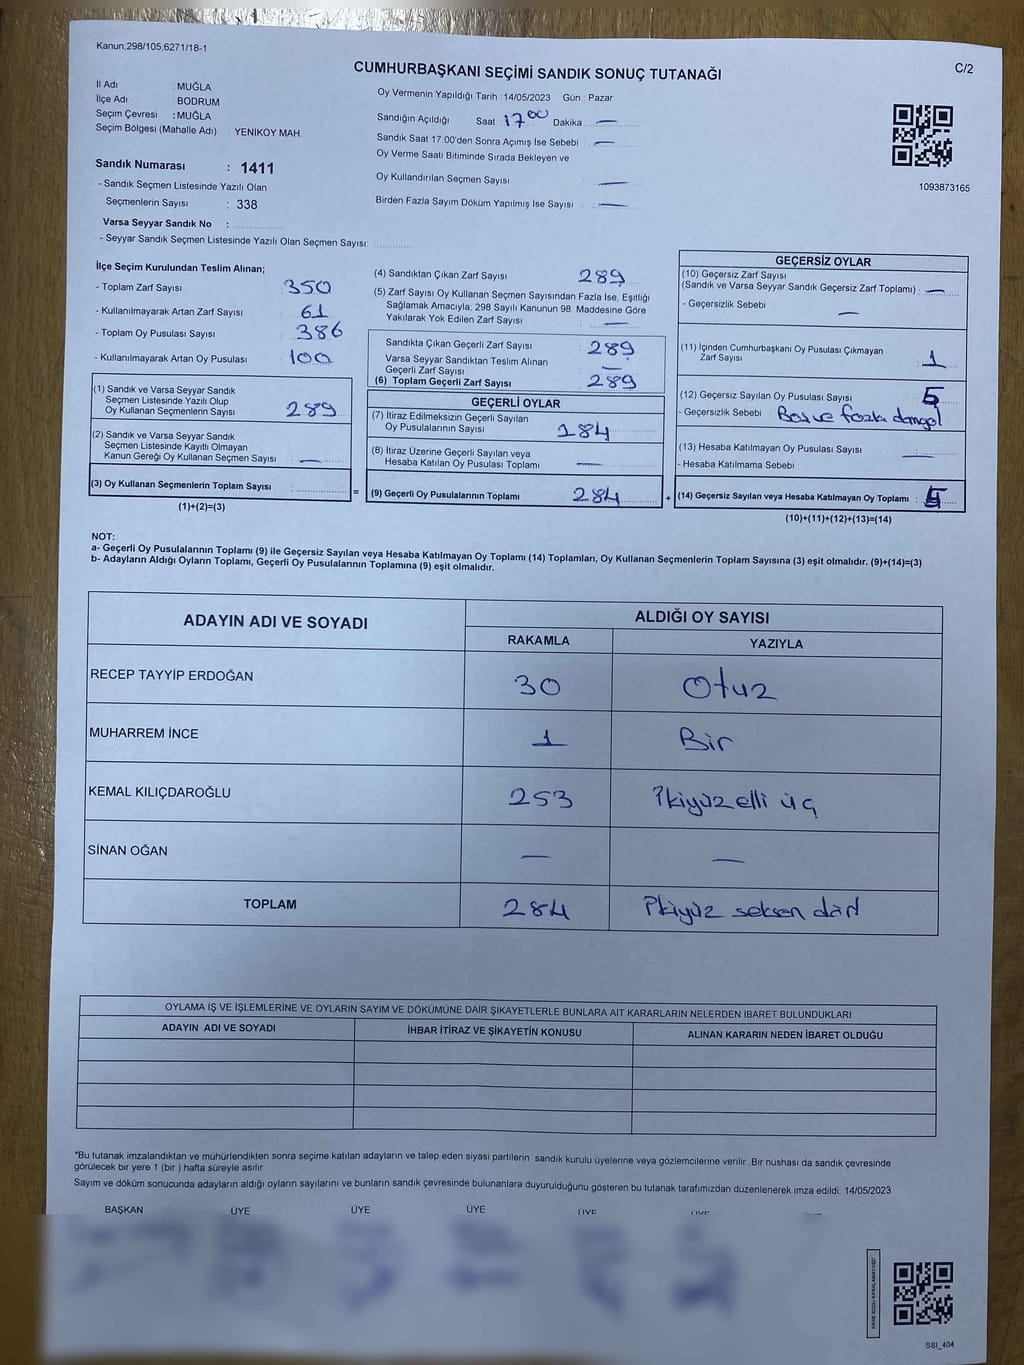 Kanun;298/105,6271/18-1
C/2
CUMHURBAŞKANI SEÇİMİ SANDIK SONUÇ TUTANAĞI
İl Adı : MUĞLA
İlçe Adı : BODRUM
Seçim Çevresi : MUĞLA
Seçim Bölgesi (Mahalle Adı) : YENİKÖY MAH.
Oy Vermenin Yapıldığı Tarih : 14/05/2023 Gün : Pazar
Sandığın Açıldığı Saat : 17 00 Dakika : —
Sandık Saat 17:00'den Sonra Açımış İse Sebebi : —
Oy Verme Saati Bitiminde Sırada Bekleyen ve
Oy Kullandırılan Seçmen Sayısı : —
Birden Fazla Sayım Döküm Yapılmış İse Sayısı : —
1093873165
Sandık Numarası : 1411
- Sandık Seçmen Listesinde Yazılı Olan
Seçmenlerin Sayısı : 338
Varsa Seyyar Sandık No :
- Seyyar Sandık Seçmen Listesinde Yazılı Olan Seçmen Sayısı:
İlçe Seçim Kurulundan Teslim Alınan;
- Toplam Zarf Sayısı : 350
- Kullanılmayarak Artan Zarf Sayısı : 61
- Toplam Oy Pusulası Sayısı : 386
- Kullanılmayarak Artan Oy Pusulası : 100
(1) Sandık ve Varsa Seyyar Sandık
Seçmen Listesinde Yazılı Olup
Oy Kullanan Seçmenlerin Sayısı : 289
(2) Sandık ve Varsa Seyyar Sandık
Seçmen Listesinde Kayıtlı Olmayan
Kanun Gereği Oy Kullanan Seçmen Sayısı : —
(3) Oy Kullanan Seçmenlerin Toplam Sayısı :
(1)+(2)=(3)
(4) Sandıktan Çıkan Zarf Sayısı : 289
(5) Zarf Sayısı Oy Kullanan Seçmen Sayısından Fazla İse, Eşitliği
Sağlamak Amacıyla; 298 Sayılı Kanunun 98. Maddesine Göre
Yakılarak Yok Edilen Zarf Sayısı : —
Sandıkta Çıkan Geçerli Zarf Sayısı : 289
Varsa Seyyar Sandıktan Teslim Alınan
Geçerli Zarf Sayısı : —
(6) Toplam Geçerli Zarf Sayısı : 289
GEÇERLİ OYLAR
(7) İtiraz Edilmeksizin Geçerli Sayılan
Oy Pusulalarının Sayısı : 184
(8) İtiraz Üzerine Geçerli Sayılan veya
Hesaba Katılan Oy Pusulası Toplamı : —
= (9) Geçerli Oy Pusulalarının Toplamı : 284 +
GEÇERSİZ OYLAR
(10) Geçersiz Zarf Sayısı
(Sandık ve Varsa Seyyar Sandık Geçersiz Zarf Toplamı) : —
- Geçersizlik Sebebi : —
(11) İçinden Cumhurbaşkanı Oy Pusulası Çıkmayan
Zarf Sayısı : 1
(12) Geçersiz Sayılan Oy Pusulası Sayısı : 5
- Geçersizlik Sebebi : Bos ve fazla damga
(13) Hesaba Katılmayan Oy Pusulası Sayısı : —
- Hesaba Katılmama Sebebi
(14) Geçersiz Sayılan veya Hesaba Katılmayan Oy Toplamı :
(10)+(11)+(12)+(13)=(14)
NOT:
a- Geçerli Oy Pusulalarının Toplamı (9) ile Geçersiz Sayılan veya Hesaba Katılmayan Oy Toplamı (14) Toplamları, Oy Kullanan Seçmenlerin Toplam Sayısına (3) eşit olmalıdır. (9)+(14)=(3)
b- Adayların Aldığı Oyların Toplamı, Geçerli Oy Pusulalarının Toplamına (9) eşit olmalıdır.
ADAYIN ADI VE SOYADI
ALDIĞI OY SAYISI
RAKAMLA YAZIYLA
RECEP TAYYİP ERDOĞAN 30 Otuz
MUHARREM İNCE 1 Bir
KEMAL KILIÇDAROĞLU 253 İkiyüzelli üç
SİNAN OĞAN — —
TOPLAM 284 İkiyüz seksen dört
OYLAMA İŞ VE İŞLEMLERİNE VE OYLARIN SAYIM VE DÖKÜMÜNE DAİR ŞİKAYETLERLE BUNLARA AİT KARARLARIN NELERDEN İBARET BULUNDUKLARI
ADAYIN ADI VE SOYADI İHBAR İTİRAZ VE ŞİKAYETİN KONUSU ALINAN KARARIN NEDEN İBARET OLDUĞU
*Bu tutanak imzalandıktan ve mühürlendikten sonra seçime katılan adayların ve talep eden siyasi partilerin sandık kurulu üyelerine veya gözlemcilerine verilir. Bir nüshası da sandık çevresinde
görülecek bir yere 1 (bir ) hafta süreyle asılır.
Sayım ve döküm sonucunda adayların aldığı oyların sayılarını ve bunların sandık çevresinde bulunanlara duyurulduğunu gösteren bu tutanak tarafımızdan düzenlenerek imza edildi. 14/05/2023
BAŞKAN ÜYE ÜYE ÜYE ÜYE ÜYE
SSI_404